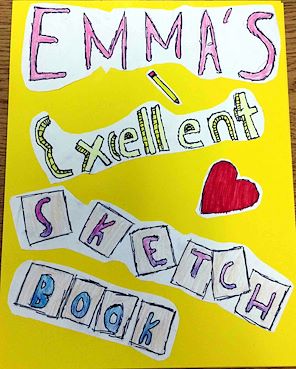 EMMA'S
Excellent
SKETCH
BOOK